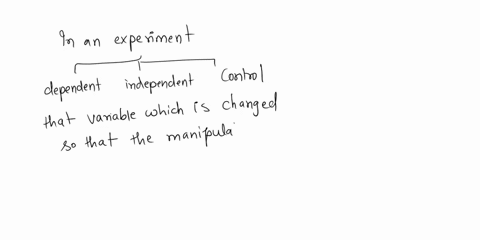 In an experiment
dependent independent Control
that variable which is changed
so that the manipula